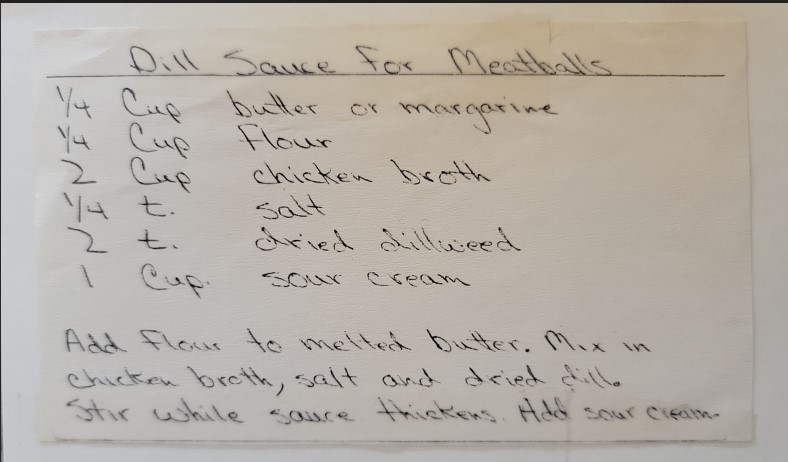 Dill Sauce For Meatballs
1/4 Cup butter or margarine
1/4 Cup Flour
2 Cup chicken broth
1/4 t. salt
2 t. dried dillweed
1 Cup. sour cream
Add Flour to melted butter. Mix in
chicken broth, salt and dried dill.
Stir while sauce thickens. Add sour cream.